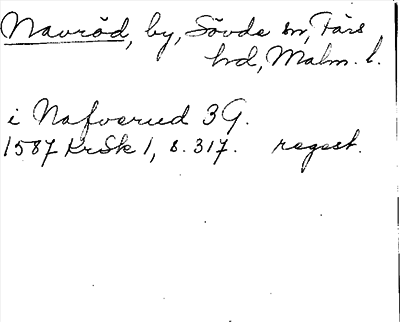 Navröd, by, Sövde sn, Färs
hd, Malm. l.
i Nafverud 3 G.
1587 KrSk 1, s. 317. regest.